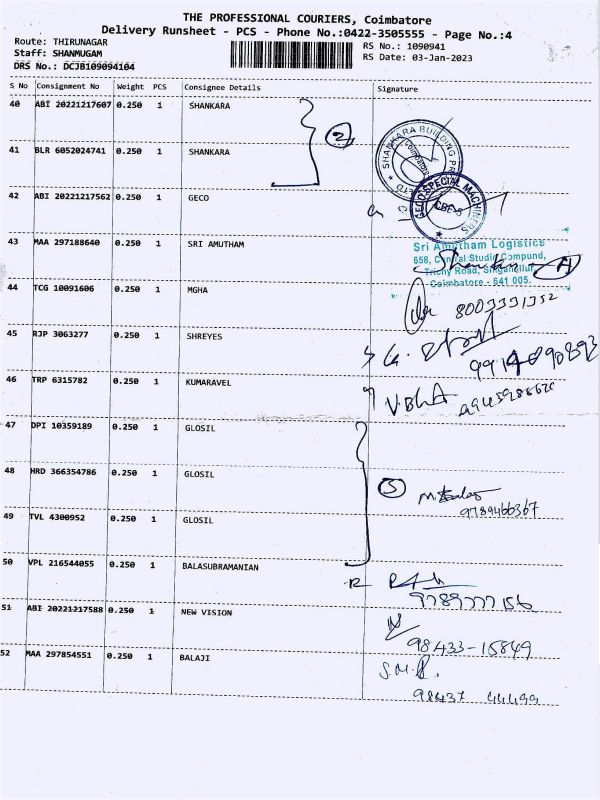 THE PROFESSIONAL COURIERS, Coimbatore
Delivery Runsheet - PCS - Phone No.:0422-3505555 - Page No.:4
Route: THIRUNAGAR
RS No.: 1090941
Staff: SHANMUGAM
RS Date: 03-Jan-2023
DRS No.: DCJB109094104
S No Consignment No Weight PCS Consignee Details Signature
40 ABI 20221217607 0.250 1 SHANKARA
2
SHANKARA BUILDING
Coimbatore
41 BLR 6052024741 0.250 1 SHANKARA
42 ABI 20221217562 0.250 1 GECO
GECO SPECIAL MACHINERS
CBE-5
43 MAA 297188640 0.250 1 SRI AMUTHAM
Sri Amutham Logistics
658, Central Studio Compund,
Trichy Road, Singanallur
Coimbatore - 641 005.
44 TCG 10091606 0.250 1 MGHA
8003331352
45 RJP 3063277 0.250 1 SHREYES
46 TRP 6315782 0.250 1 KUMARAVEL
47 DPI 10359189 0.250 1 GLOSIL
48 HRD 366354786 0.250 1 GLOSIL
9789466367
49 TVL 4300952 0.250 1 GLOSIL
50 VPL 216544055 0.250 1 BALASUBRAMANIAN
9789777156
51 ABI 20221217588 0.250 1 NEW VISION
98433-15849
52 MAA 297854551 0.250 1 BALAJI
98437 44499